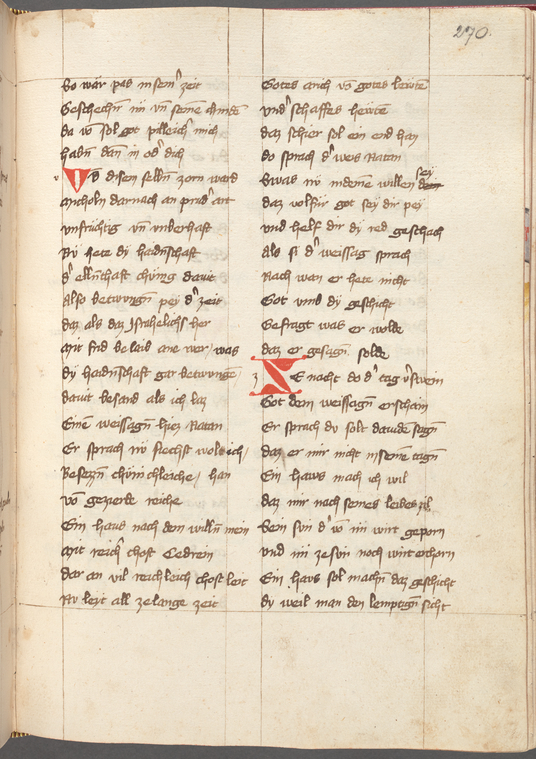 270.
So wär pas in sein' zeit
Geschechn̄ im vn̄ seinē chindē
da vō sol got pilleich mich
habn̄ dan̄ in od' dich
Vō disen selbn̄ zorn ward
michols darnach an prud' art
vnfrüchtig vn̄ vnberhaft
Nv hete dy haidn̄schaft
d' ellnchaft chünig dauit
Also betwungn̄ pey d' zeit
daz als daz Israhelisch her
mit frid belaib ane wer / was
dy haidn̄schaft gar betwungē
dauit besand als ich laz
Einē weissagn̄ hiez Natan
Er sprach nv siechst wol ich /
Besezzn̄ chünichleiche / han
vō gezierde reiche
Ein haus nach dem willn̄ mein
mit reich' chost Cedrein
dar an vil reichleich chost leit
Nv leyt all ze lange zeit
Gotes arich vn̄ gotes lewtē
vnd' schaffes hewtē
daz schier sol ein end han
do sprach d' weis Natan
Swas nv in deinē willen sey
daz volfür got sey dir pey
vnd helf dir dy red geschach
Als si d' weissag sprach
Nach wan er hete nicht
Got vmb dy geschicht
Gefragt was er wolde
daz er gesagn̄ solde
Ze nacht do d' tag v'swein
Got dem weissagn̄ erschain
Er sprach du solt dauidē sagn̄
daz er mir nicht in seinē tagn̄
Ein haws mach ich wil
daz mir nach seines leibes zil
Sein sun d' vō im wirt geporn
vnd im ze sun noch wirt erchorn
Ein haus sol machn̄ daz geschicht
dy weil man den lemptign̄ sicht